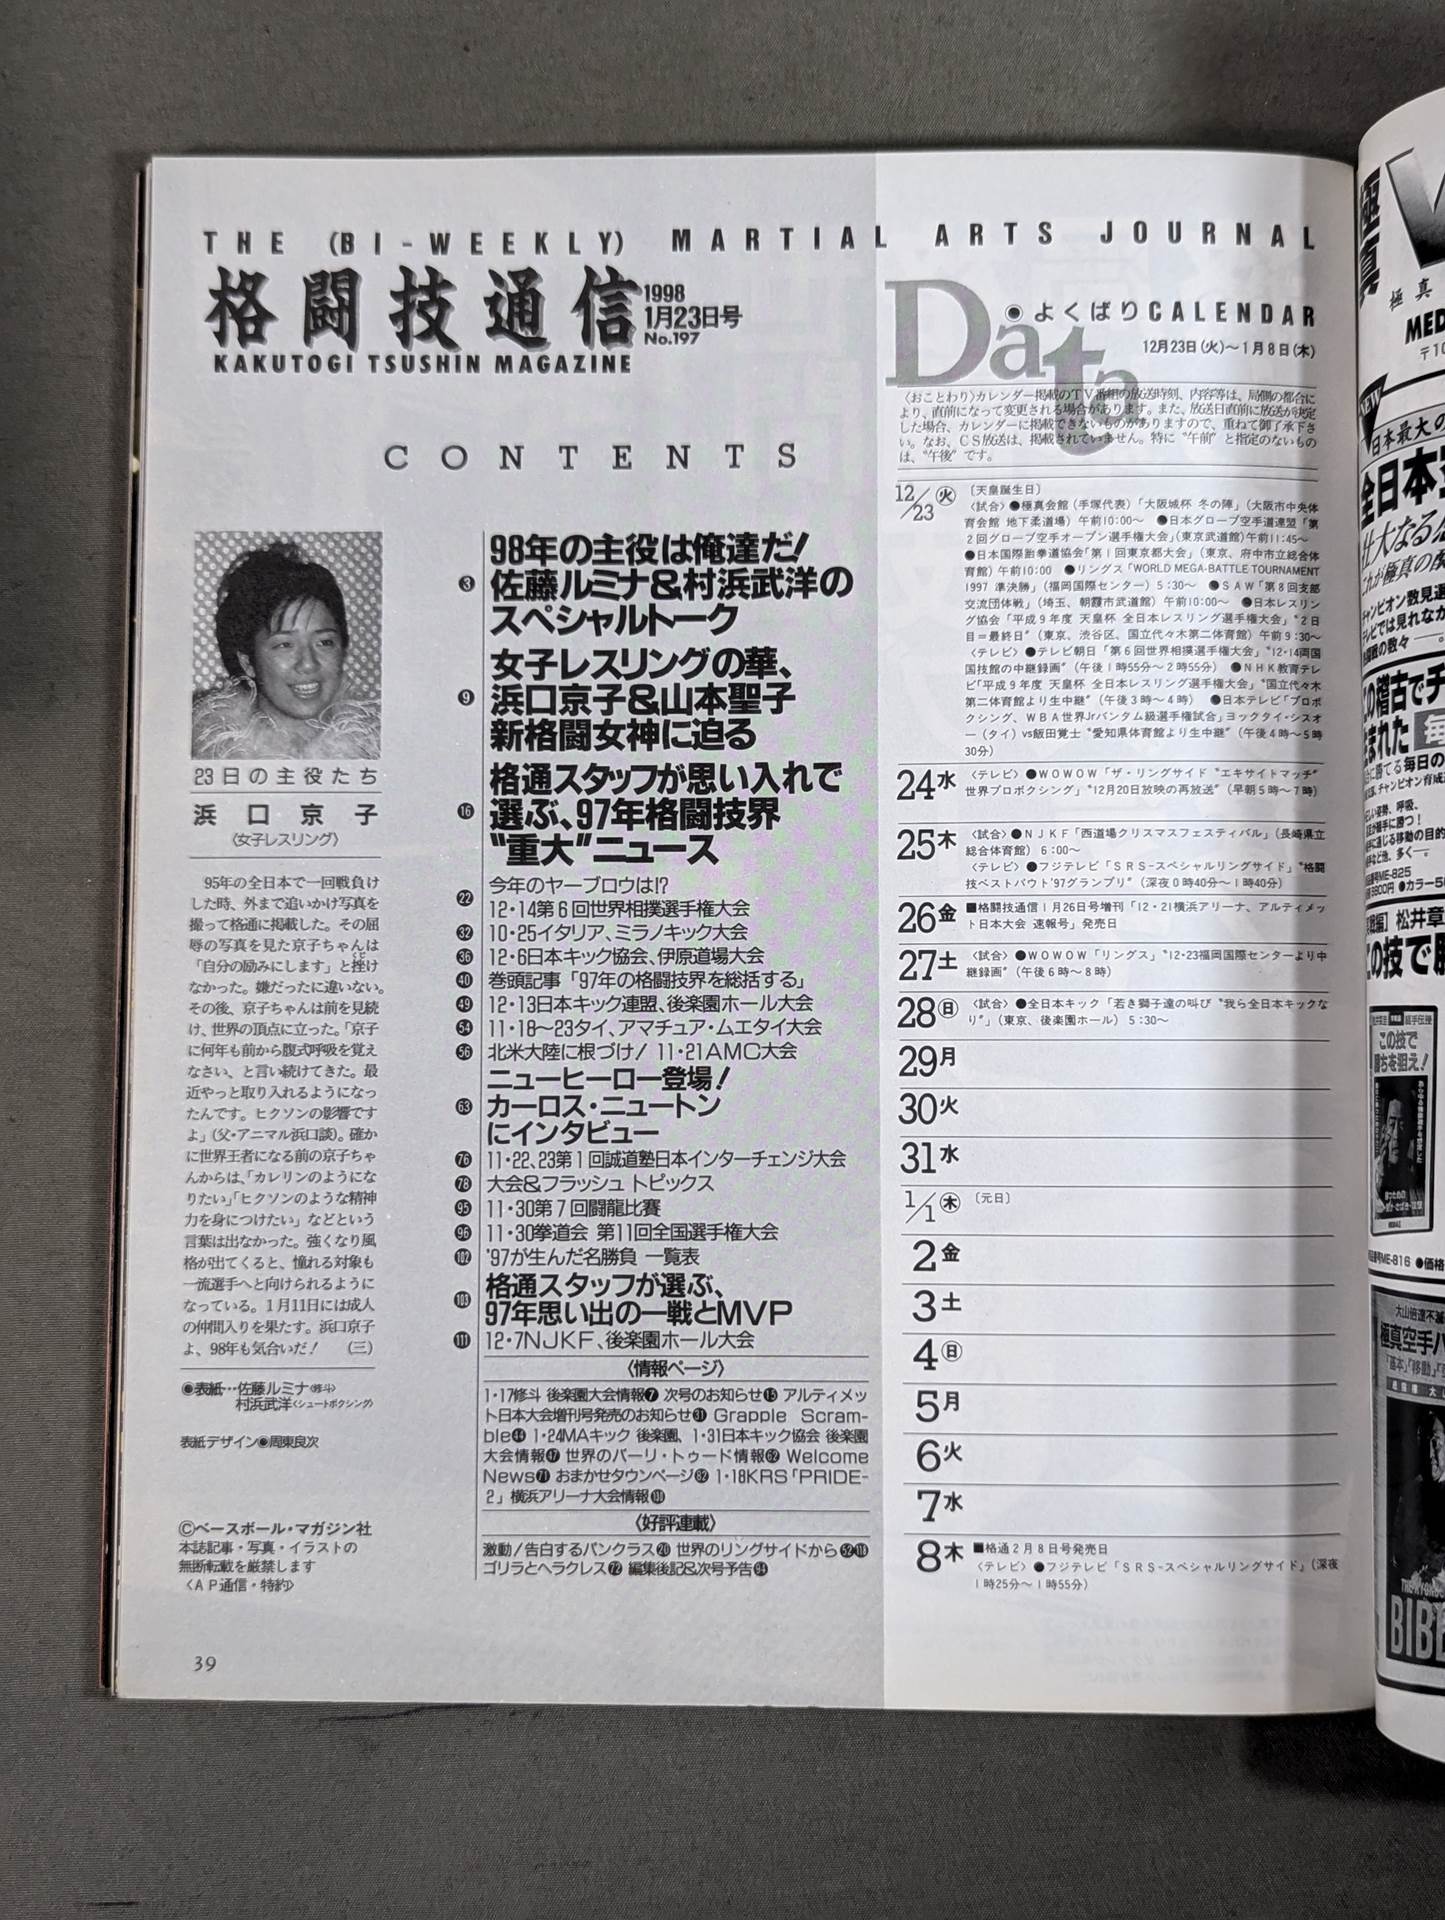 THE (BI-WEEKLY) MARTIAL ARTS JOURNAL
格闘技通信
1998
1月23日号
No.197
KAKUTOGI TSUSHIN MAGAZINE
CONTENTS
23日の主役たち
浜口京子
〈女子レスリング〉
95年の全日本で一回戦負け
した時、外まで追いかけ写真を
撮って格通に掲載した。その屈
辱の写真を見た京子ちゃんは
「自分の励みにします」と挫け
なかった。嫌だったに違いない。
その後、京子ちゃんは前を見続
け、世界の頂点に立った。「京子
に何年も前から腹式呼吸を覚え
なさい、と言い続けてきた。最
近やっと取り入れるようになっ
たんです。ヒクソンの影響です
よ」(父・アニマル浜口談)。確か
に世界王者になる前の京子ちゃ
んからは、「カレリンのようにな
りたい」「ヒクソンのような精神
力を身につけたい」などという
言葉は出なかった。強くなり風
格が出てくると、憧れる対象も
一流選手へと向けられるように
なっている。1月11日には成人
の仲間入りを果たす。浜口京子
よ、98年も気合いだ! (三)
◉表紙…佐藤ルミナ〈修斗〉
村浜武洋〈シュートボクシング〉
表紙デザイン◉周東良次
©ベースボール・マガジン社
本誌記事・写真・イラストの
無断転載を厳禁します
〈AP通信・特約〉
39
98年の主役は俺達だ!
3 佐藤ルミナ&村浜武洋の
スペシャルトーク
女子レスリングの華、
9 浜口京子&山本聖子
新格闘女神に迫る
格通スタッフが思い入れで
16 選ぶ、97年格闘技界
“重大”ニュース
今年のヤーブロウは!?
22 12・14第6回世界相撲選手権大会
32 10・25イタリア、ミラノキック大会
36 12・6日本キック協会、伊原道場大会
40 巻頭記事「97年の格闘技界を総括する」
49 12・13日本キック連盟、後楽園ホール大会
54 11・18〜23タイ、アマチュア・ムエタイ大会
56 北米大陸に根づけ! 11・21AMC大会
ニューヒーロー登場!
63 カーロス・ニュートン
にインタビュー
76 11・22、23第1回誠道塾日本インターチェンジ大会
78 大会&フラッシュ トピックス
95 11・30第7回闘龍比賽
96 11・30拳道会 第11回全国選手権大会
102 '97が生んだ名勝負 一覧表
格通スタッフが選ぶ、
103 97年思い出の一戦とMVP
111 12・7NJKF、後楽園ホール大会
〈情報ページ〉
1・17修斗 後楽園大会情報7 次号のお知らせ15 アルティメッ
ト日本大会増刊号発売のお知らせ31 Grapple Scram-
ble44 1・24MAキック 後楽園、1・31日本キック協会 後楽園
大会情報47 世界のバーリ・トゥード情報62 Welcome
News71 おまかせタウンページ82 1・18KRS「PRIDE-
2」横浜アリーナ大会情報
〈好評連載〉
激動/告白するパンクラス20 世界のリングサイドから52
ゴリラとヘラクレス72 編集後記&次号予告94
Data
◉よくばりCALENDAR
12月23日(火)〜1月8日(木)
〈おことわり〉カレンダー掲載のTV番組の放送時刻、内容等は、局側の都合に
より、直前になって変更される場合があります。また、放送日直前に放送が決定
した場合、カレンダーに掲載できないものがありますので、重ねて御了承下さ
い。なお、CS放送は、掲載されていません。特に“午前”と指定のないもの
は、“午後”です。
12/23 火 〔天皇誕生日〕
〈試合〉●極真会館(手塚代表)「大阪城杯 冬の陣」(大阪市中央体
育会館 地下柔道場)午前10:00〜 ●日本グローブ空手道連盟「第
2回グローブ空手オープン選手権大会」(東京武道館)午前11:45〜
●日本国際跆拳道協会「第1回東京都大会」(東京、府中市立総合体
育館)午前10:00 ●リングス「WORLD MEGA-BATTLE TOURNAMENT
1997 準決勝」(福岡国際センター)5:30〜 ●SAW「第8回支部
交流団体戦」(埼玉、朝霞市武道館)午前10:00〜 ●日本レスリン
グ協会「平成9年度 天皇杯 全日本レスリング選手権大会」“2日
目=最終日”(東京、渋谷区、国立代々木第二体育館)午前9:30〜
〈テレビ〉●テレビ朝日「第6回世界相撲選手権大会」“12・14両国
国技館の中継録画”(午後1時55分〜2時55分) ●NHK教育テレ
ビ「平成9年度 天皇杯 全日本レスリング選手権大会」“国立代々木
第二体育館より生中継”(午後3時〜4時) ●日本テレビ「プロボ
クシング、WBA世界Jrバンタム級選手権試合」ヨックタイ・シスオ
ー(タイ)vs飯田覚士“愛知県体育館より生中継”(午後4時〜5時
30分)
24水 〈テレビ〉●WOWOW「ザ・リングサイド“エキサイトマッチ”
世界プロボクシング」“12月20日放映の再放送”(早朝5時〜7時)
25木 〈試合〉●NJKF「西道場クリスマスフェスティバル」(長崎県立
総合体育館)6:00〜
〈テレビ〉●フジテレビ「SRS-スペシャルリングサイド」“格闘
技ベストバウト'97グランプリ”(深夜0時40分〜1時40分)
26金 ■格闘技通信1月26日号増刊「12・21横浜アリーナ、アルティメッ
ト日本大会 速報号」発売日
27土 〈試合〉●WOWOW「リングス」“12・23福岡国際センターより中
継録画”(午後6時〜8時)
28日 〈試合〉●全日本キック「若き獅子達の叫び“我ら全日本キックな
り”」(東京、後楽園ホール)5:30〜
29月
30火
31水
1/1 木 〔元日〕
2金
3土
4日
5月
6火
7水
8木 ■格通2月8日号発売日
〈テレビ〉●フジテレビ「SRS-スペシャルリングサイド」(深夜
1時25分〜1時55分)
極真
MED
NEW
日本最大の
この技で
勝ちを狙え!